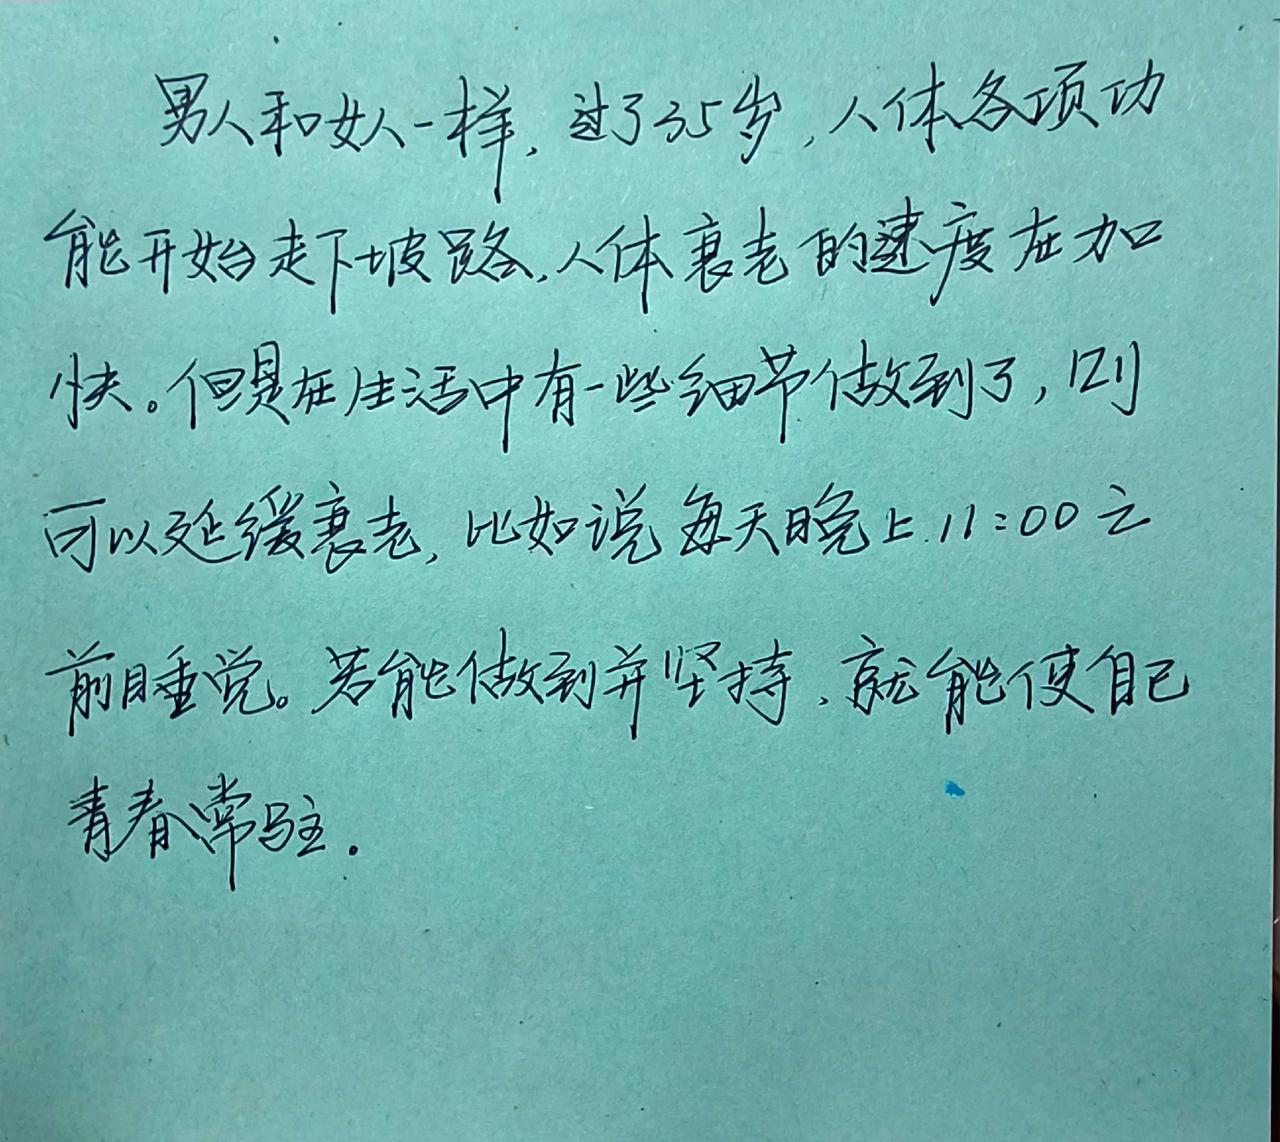 男人和女人一样，过了35岁，人体各项功
能开始走下坡路，人体衰老的速度在加
快。但是在生活中有一些细节做到了，则
可以延缓衰老，比如说每天晚上11:00之
前睡觉。若能做到并坚持，就能使自己
青春常驻.